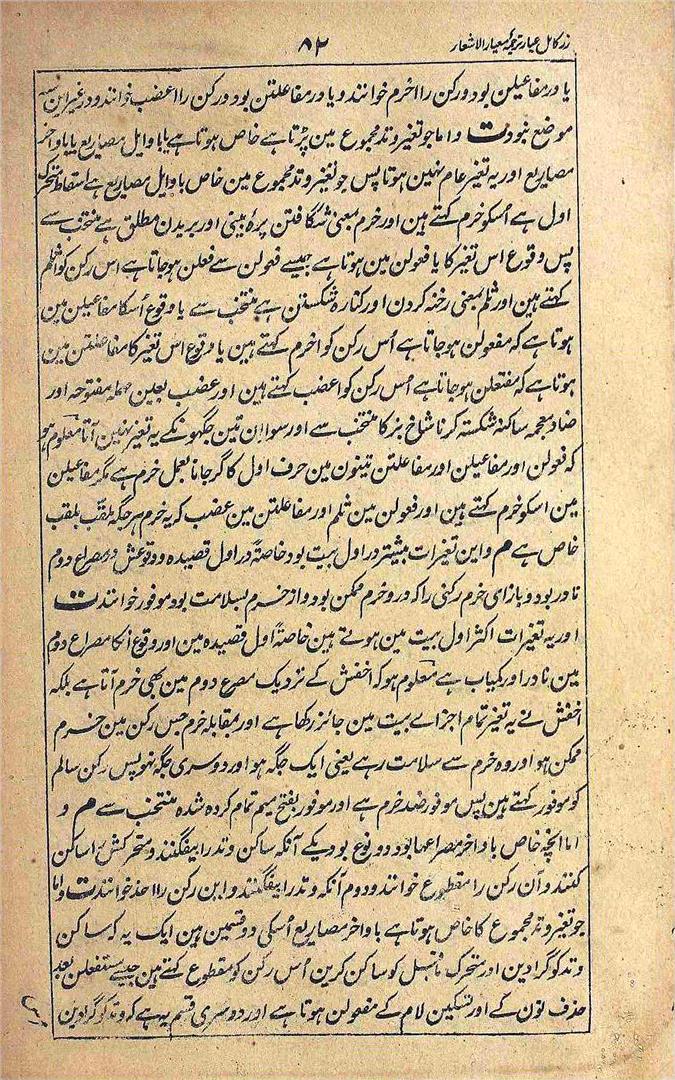 زر کامل عیار ترجمہ معیار الاشعار
۸۲
یا در مفاعیلن بود و رکن را اخرم خوانند و یا در مفاعلتن بود و رکن را اعضب خوانند و در غیر این سه
موضع نبودت و اما جو تغیر وتد مجموع مین پڑتا ہے خاص ہوتا ہے یا باوایل مصاریع یا باواخر
مصاریع اور یہ تغیر عام نہین ہوتا پس جو تغیر وتد مجموع مین خاص باوایل مصاریع ہے اسقاط متحرک
اول ہے اُسکو خرم کہتے ہین اور خرم بمعنی شگافتن پرۂ بینی اور بریدن مطلق ہے منتخب سے
پس وقوع اس تغیر کا یا فعولن مین ہوتا ہے جیسے فعولن سے فعلن ہو جاتا ہے اس رکن کو اثلم
کہتے ہین اور ثلم بمعنی رخنہ کردن اور کنارہ شکستن ہے منتخب سے یا وقوع اُسکا مفاعیلن مین
ہوتا ہے کہ مفعولن ہو جاتا ہے اُس رکن کو اخرم کہتے ہین یا وقوع اس تغیر کا مفاعلتن مین
ہوتا ہے کہ مفتعلن ہو جاتا ہے اُس رکن کو اعضب کہتے ہین اور عضب بعین مہملہ مفتوحہ اور
ضاد معجمہ ساکنہ شکستہ کرنا شاخ بز کا منتخب سے اور سوا ان تین جگہونکے یہ تغیر نہین آتا معلوم ہو
کہ فعولن اور مفاعیلن اور مفاعلتن تینون مین حرف اول کا گر جانا بعمل خرم ہے مگر مفاعیلن
مین اسکو خرم کہتے ہین اور فعولن مین ثلم اور مفاعلتن مین عضب کہ یہ خرم ہر جگہ بلقب بلقب
خاص ہے م و این تغیرات بیشتر در اول بیت بود خاصۃً در اول قصیدہ و وقوعش در مصراع دوم
نادر بود و بازای خرم رکنی را کہ درو خرم ممکن بود و از خرم بسلامت بود موفور خوانندت
اور یہ تغیرات اکثر اول بیت مین ہوتے ہین خاصۃً اول قصیدہ مین اور وقوع انکا مصراع دوم
مین نادر اور کمیاب ہے معلوم ہو کہ اخفش کے نزدیک مصرع دوم مین بھی خرم آتا ہے بلکہ
اخفش نے یہ تغیر تمام اجزاے بیت مین جائز رکھا ہے اور مقابلہ خرم جس رکن مین خرم
ممکن ہو اور وہ خرم سے سلامت رہے یعنی ایک جگہ ہو اور دوسری جگہ نہو پس رکن سالم
کو موفور کہتے ہین پس موفور ضد خرم ہے اور موفور بفتح میم تمام کردہ شدہ منتخب سے م و
اما انچہ خاص باواخر مصراعہا بود دو نوع بود یکے آنکہ ساکن وتد را بیفگنند و متحرکش را ساکن
کنند و آن رکن را مقطوع خوانند و دوم آنکہ وتد را بیفگنند و این رکن را احذ خوانندت و اما
جو تغیر وتد مجموع کا خاص ہوتا ہے باواخر مصاریع اُسکی دو قسمین ہین ایک یہ کہ ساکن
وتد کو گرا دین اور متحرک ماقبل کو ساکن کرین اُس رکن کو مقطوع کہتے ہین جیسے مستفعلن بعد
حذف نون کے اور تسکین لام کے مفعولن ہوتا ہے اور دوسری قسم یہ ہے کہ وتد کو گرا دین